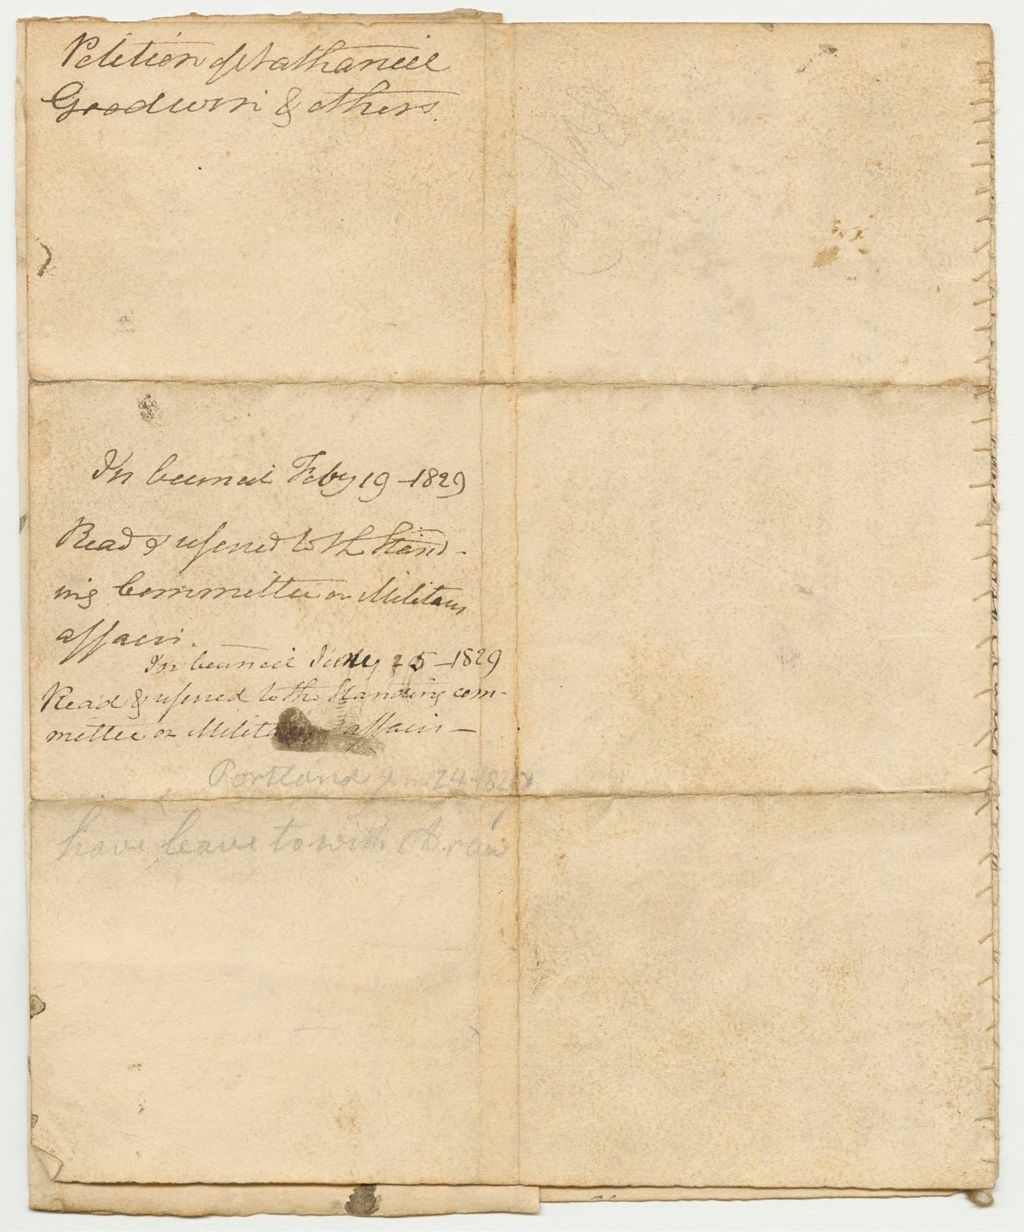 Petition of Nathaniel
Goodwin & others.
In Council Feby 19 - 1829
Read & referred to the Stand-
ing Committee on Military
affairs.
In Council June 25 - 1829
Read & referred to the Standing com-
mittee on Military affairs -
Portland
have leave to with draw